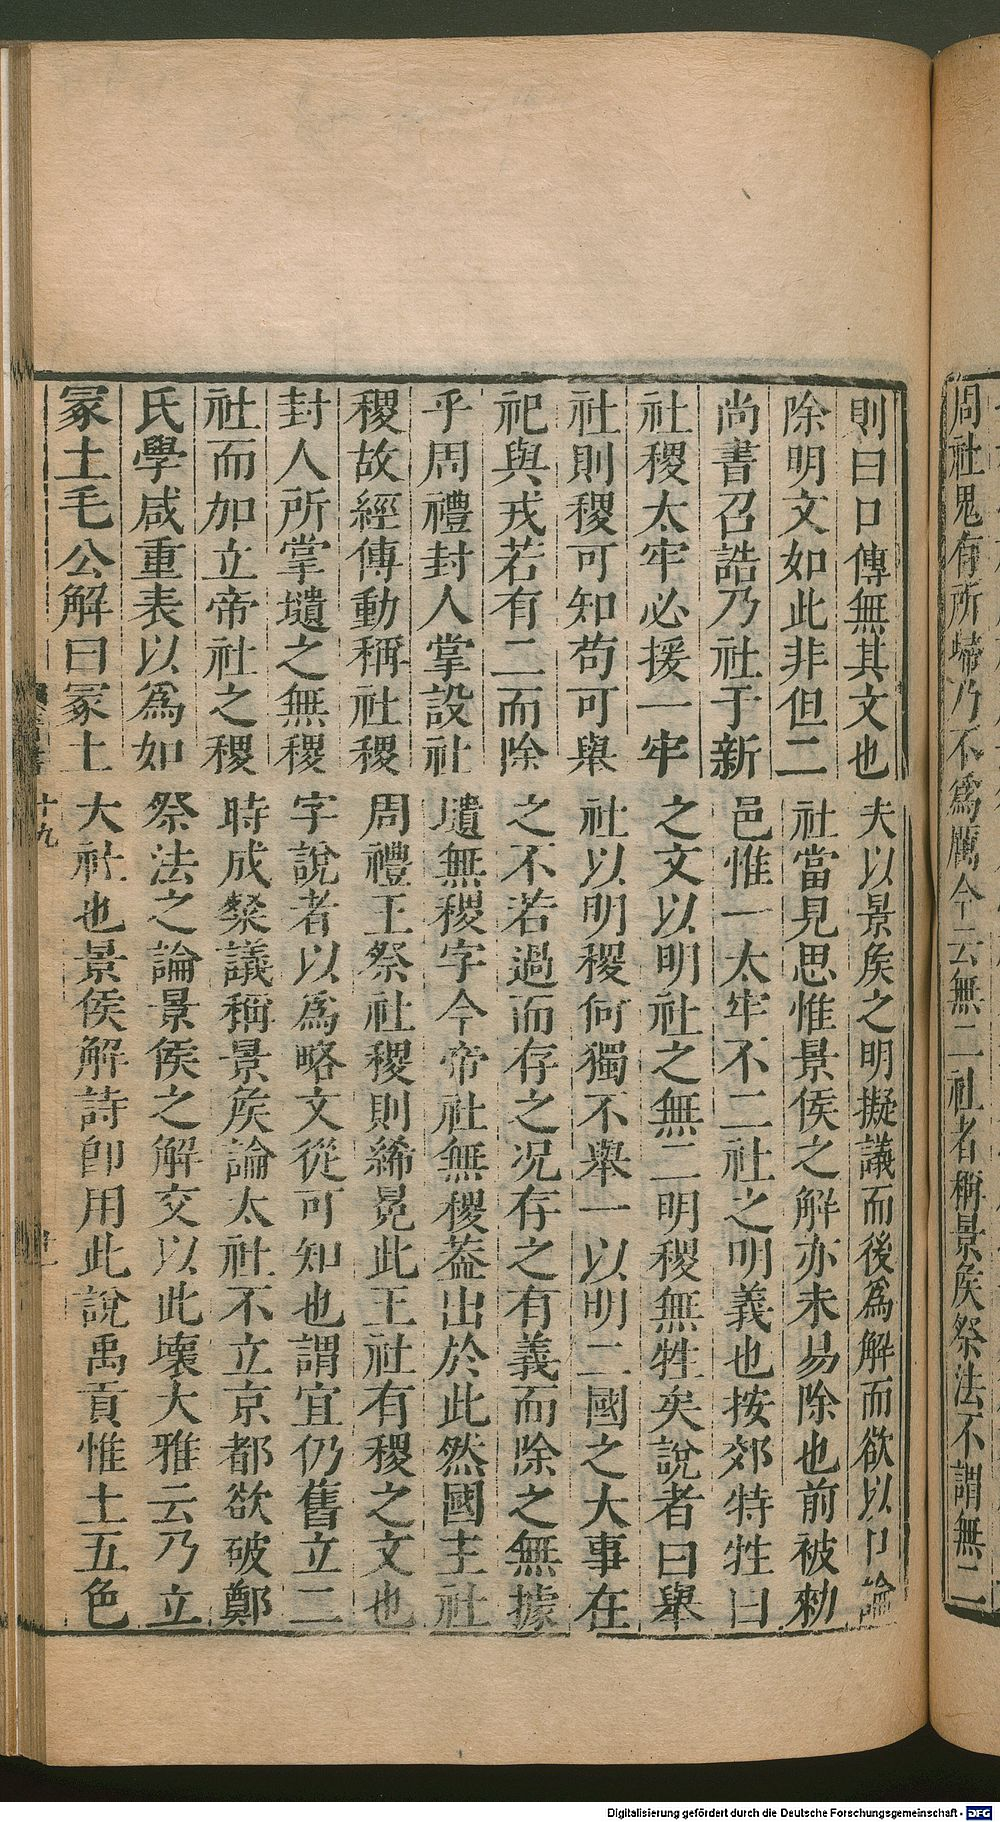 周社鬼有所歸乃不為厲今云無二社者稱景矦祭法不謂無二
則曰口傳無其文也夫以景矦之明擬議而後為解而欲以口論
除明文如此非但二社當見思惟景侯之解亦未易除也前被勑
尚書召誥乃社于新邑惟一太牢不二社之明義也按郊特牲曰
社稷太牢必援一牢之文以明社之無二明稷無牲矣說者曰舉
社則稷可知苟可舉社以明稷何獨不舉一以明二國之大事在
祀與戎若有二而除之不若過而存之况存之有義而除之無據
乎周禮封人掌設社壝無稷字今帝社無稷葢出於此然國主社
稷故經傳動稱社稷周禮王祭社稷則絺冕此王社有稷之文也
封人所掌壝之無稷字說者以為略文從可知也謂宜仍舊立二
社而加立帝社之稷時成粲議稱景矦論太社不立京都欲破鄭
氏學咸重表以為如祭法之論景侯之解交以此壞大雅云乃立
冡土毛公解曰冡土大社也景侯解詩卽用此說禹貢惟土五色
十九
Digitalisierung gefördert durch die Deutsche Forschungsgemeinschaft - DFG